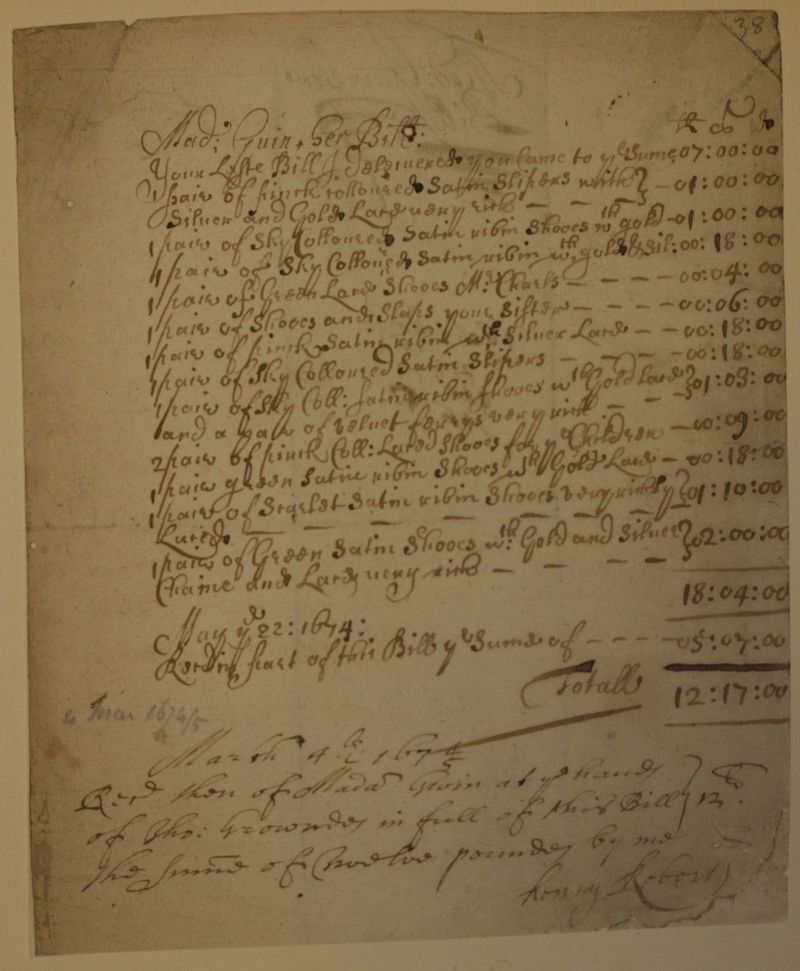 38
Mad: Guin, her Bill:
Your Laste Bill I Delivered you Came to ye Sume 07:00:00
1 pair of pinck colloured Satin Slipers with } - 01:00:00
Silver and Gold Lace very rich - - -
1 pair of Sky Colloured Satin ribin Shooes wth gold - 01:00:00
1 pair of Sky Colloured Satin ribin wth gold & Sil: 00:18:00
1 pair of Green Lace Shooes Mr: Charls - - - - 00:04:00
1 pair of Shooes and Slaps your Sister - - - - 00:06:00
1 pair of pinck Satin ribin wth Silver Lace - - 00:18:00
1 pair of Sky Colloured Satin Slipers - - - - 00:18:00
1 pair of Sky Coll: Satin ribin Shooes wth Gold Lace } 01:03:00
and a pair of velvet very rich - - -
2 pair of pinck Coll: Laced Shooes for ye Children - 00:09:00
1 pair green Satin ribin Shooes wth Gold Lace - 00:18:00
1 pair of Scarlet Satin ribin Shooes very richly } 01:10:00
Laced - - - - - - -
1 pair of Green Satin Shooes wth: Gold and Silver } 02:00:00
Chaine and Lace very rich - - - -
18:04:00
May ye 22: 1674:
Received part of this Bill ye Sume of - - - - 05:07:00
Totall 12:17:00
4 Mar 1674/5
March 4th 1674/5
Recd then of Madam Gwin at ye hands
of Tho: Growndes in full of this Bill } 12
the Sume of Twelve poundes by me
Henry Robert